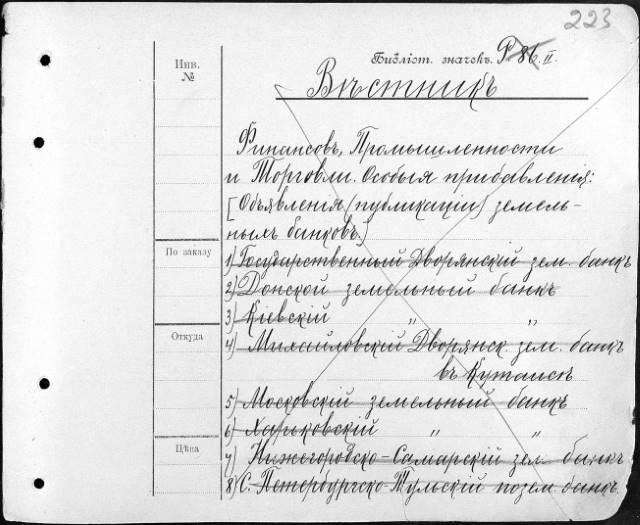 223
Инв. №
Библіот. значекъ. Р. 86. II.
Вѣстникъ
Финансовъ, Промышленности
и Торговли. Особыя прибавленія:
[Объявленія (публикаціи) земель-
ныхъ банковъ.]
По заказу
1) Государственный Дворянскій зем. банкъ
2) Донской земельный банкъ
3) Кіевскій " "
Откуда
4) Михайловскій Дворянск. зем. банкъ
въ Кутаисѣ
5) Московскій земельный банкъ
6) Харьковскій " "
Цѣна
7) Нижегородско-Самарскій зем. банкъ
8) С. Петербургско-Тульскій позем. банкъ.